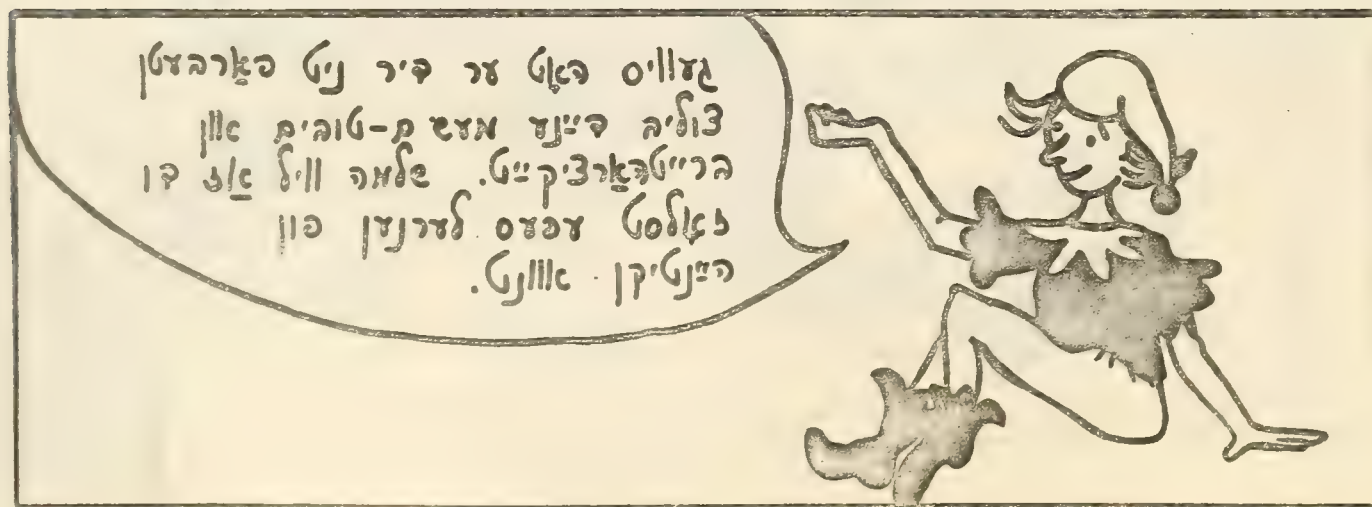 געוויס האָט ער דיר ניט פֿאַרבעטן
צוליב דײַנע מעשׂם-טובֿים און
ברייטהאַרציקײַט. שלמה וויל אַז דו
זאָלסט עפּעס לערנען פֿון
הײַנטיקן אָוונט.